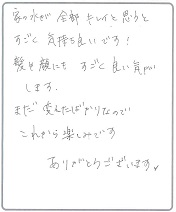 家の水が全部キレイと思うと
すごく気持ち良いです!
髪や顔にもすごく良い気が
します。
まだ変えたばかりなので
これから楽しみです
ありがとうございます